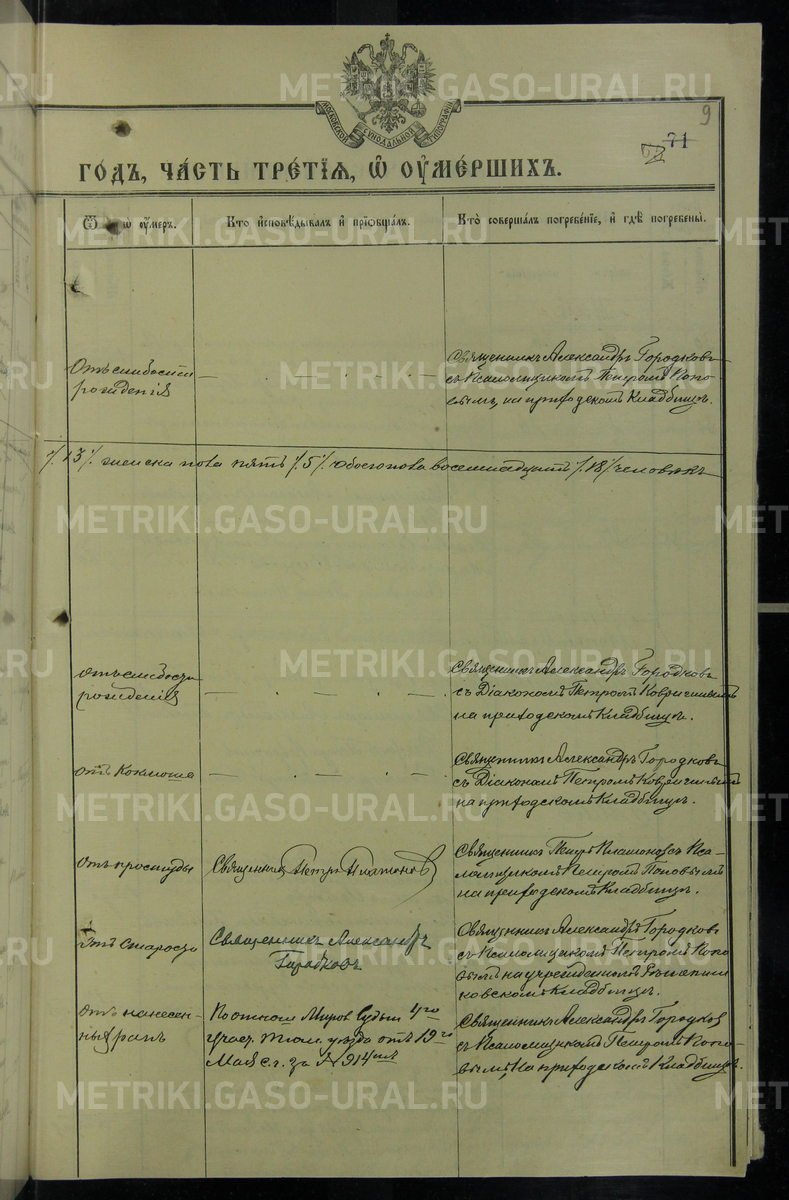 METRIKI.GASO-URAL.RU
МОСКОВСКОЙ СѴНОДАЛЬНОЙ ТИПОГРАФІИ
9
71
ГО́ДЪ, ЧА́СТЬ ТРЕ́ТІѦ, Ѽ ОУ҆МЕ́РШИХЪ.
оу҆ме́ръ.
Кто̀ и҆сповѣ́дывалъ и҆ прїѡбща́лъ.
Кто̀ соверша́лъ погребе́нїе, и҆ гдѣ̀ погребены̀.
Отъ слабости
рожденія
Священникъ Александръ Городковъ
съ Псаломщикомъ Петромъ Попо-
вымъ, на приходскомъ Кладбищѣ.
/.13/. женска пола пять /.5/. обоего пола восемнадцать /.18/. человѣкъ
отъ слабости
рожденія
Священникъ Александръ Городковъ
съ Діакономъ Петромъ
на приходскомъ Кладбищѣ.
отъ Коклюша
Священникъ Александръ Городковъ
съ Діакономъ Петромъ
на приходскомъ Кладбищѣ.
Отъ простуды
Священникъ Петръ Платоновъ
Священникъ Петръ Платоновъ съ Пса-
ломщикомъ Петромъ Поповымъ
на приходскомъ Кладбищѣ.
Отъ Старости
Священникъ Александръ
Городковъ
Священникъ Александръ Городковъ
съ Псаломщикомъ Петромъ Попо-
вымъ на учрежденномъ
ковскомъ Кладбищѣ.
отъ нанесен-
ныхъ ранъ
По отнош. Миров. Судьи 4го
участ. уѣзда отъ 19го
Мая с. г. за № 914мъ
Священникъ Александръ Городковъ
съ Псаломщикомъ Петромъ Попо-
вымъ, на приходскомъ Кладбищѣ.